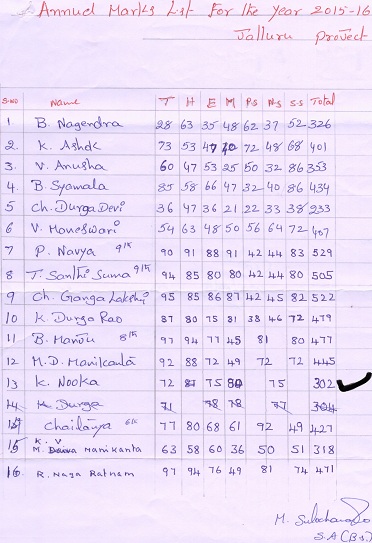 Annual Marks List For the Year 2015-16
Jalluru project
S.NO Name T H E M P.S N.S S.S Total
1 B. Nagendra 28 63 35 48 62 37 52 326
2. K. Ashok 73 53 47 70 72 48 68 401
3. V. Anusha 60 47 53 25 50 32 86 353
4. B. Syamala 85 58 66 47 32 40 86 434
5 Ch. Durga Devi 36 47 36 21 22 33 38 233
6 V. Maneswari 54 63 48 50 56 64 72 407
7 P. Navya 90 91 88 91 42 44 83 529
8 T. Santhi Suma 94 85 80 80 42 44 80 505
9 Ch. Ganga Lakshmi 95 85 86 87 42 45 82 522
10 K. Durga Rao 87 80 75 81 38 46 72 479
11 B. Manju 97 94 77 45 81 80 477
12 M.D. Manikanta 92 88 72 49 72 72 445
13 K. Nooka 72 87 75 80 75 302
14 K. Durga 71 78 78 77 304
14 Chaitanya 77 80 68 61 92 49 427
15 K. V
M. Manikanta 63 58 60 36 50 51 318
16. R. Naga Ratnam 97 94 76 49 81 74 471
M.
S.A (B.S.)